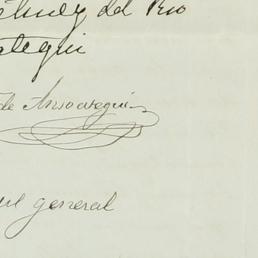 del Rio
ategui
de Ansoategui
general